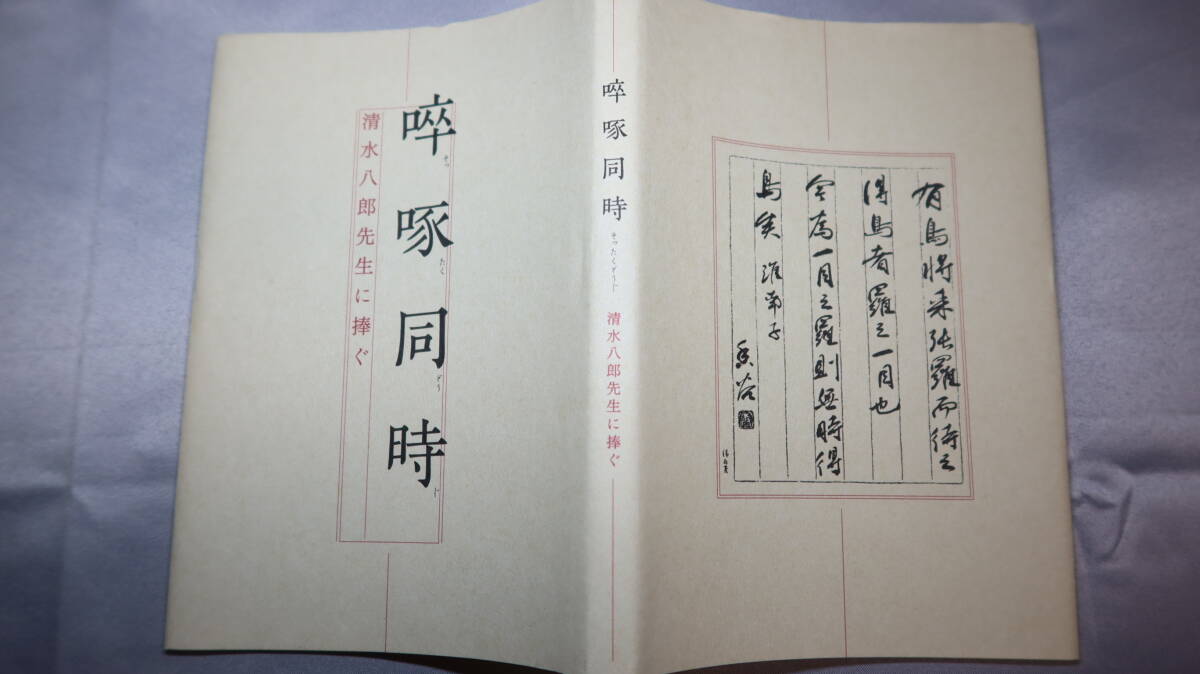 啐啄同時
そっ たく どう じ
清水八郎先生に捧ぐ
啐啄同時
そったくどうじ
清水八郎先生に捧ぐ
有鳥将来張羅而待之
得鳥者羅之一目也
今為一目之羅則無時得
鳥矣 淮南子